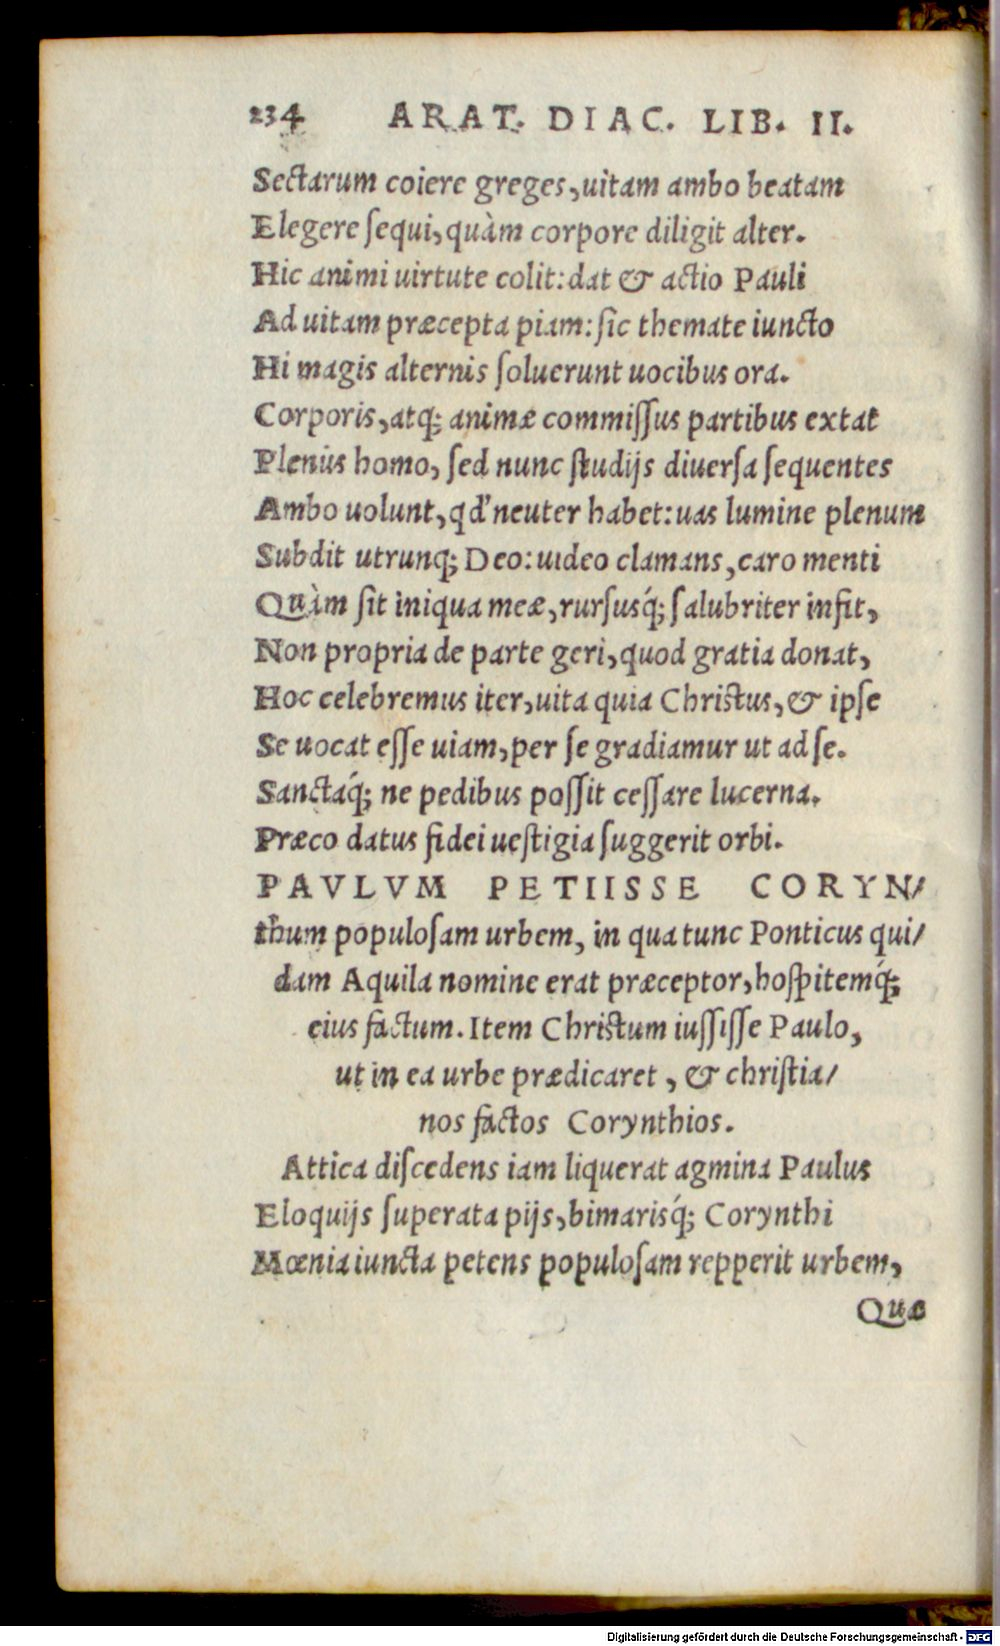 234 ARAT. DIAC. LIB. II.
Sectarum coiere greges, uitam ambo beatam
Elegere ſequi, quàm corpore diligit alter.
Hic animi uirtute colit: dat & actio Pauli
Ad uitam præcepta piam: ſic themate iuncto
Hi magis alternis ſoluerunt uocibus ora.
Corporis, atq; animæ commiſſus partibus extat
Plenius homo, ſed nunc ſtudijs diuerſa ſequentes
Ambo uolunt, qđ neuter habet: uas lumine plenum
Subdit utrunq; Deo: uideo clamans, caro menti
Quàm ſit iniqua meæ, rurſusq́; ſalubriter infit,
Non propria de parte geri, quod gratia donat,
Hoc celebremus iter, uita quia Chriſtus, & ipſe
Se uocat eſſe uiam, per ſe gradiamur ut ad ſe.
Sanctaq́; ne pedibus poſſit ceſſare lucerna.
Præco datus fidei ueſtigia ſuggerit orbi.
PAVLVM PETIISSE CORYN/
thum populoſam urbem, in qua tunc Ponticus qui/
dam Aquila nomine erat præceptor, hoſpitemq́;
eius factum. Item Chriſtum iuſſiſſe Paulo,
ut in ea urbe prædicaret, & chriſtia/
nos factos Corynthios.
Attica diſcedens iam liquerat agmina Paulus
Eloquijs ſuperata pijs, bimarisq́; Corynthi
Mœnia iuncta petens populoſam repperit urbem,
Quæ
Digitalisierung gefördert durch die Deutsche Forschungsgemeinschaft - DFG